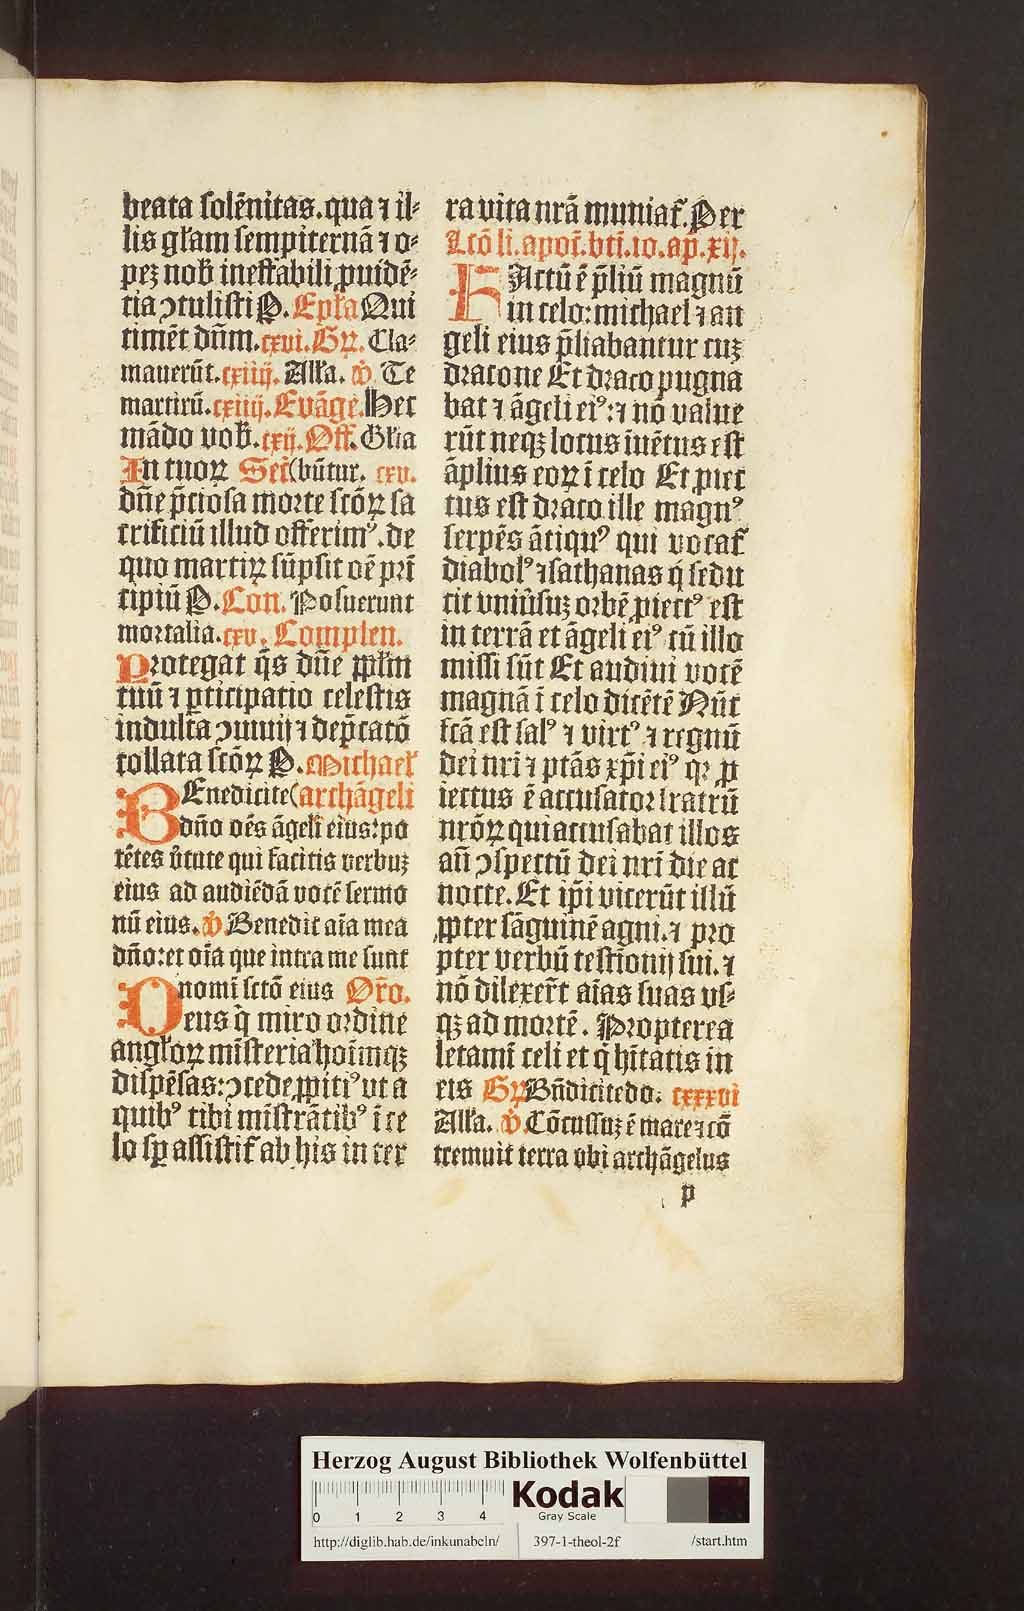 beata solēnitas.qua ⁊ il⸗
lis gl̄am sempiternā ⁊ o⸗
peꝫ nob̄ ineffabili ꝓuidē⸗
tia ↄtulisti P. Epl̄a Qui
timēt dn̄m.cxvi.Gꝝ. Cla⸗
mauerūt.cxiiij. All̄a. v̄ Te
martirū.cxiiij.Evāge.Hec
mādo vob̄.cxij.Off. Gl̄ia
In tuoꝝ Sec̄(būtur. cxv.
dn̄e p̄ciosa morte scōꝝ sa
crificiū illud offerimꝰ.de
quo martiꝝ sūpsit oē pri̅
cipiū P.Con. Posuerunt
mortalia.cxv. Complen.
Protegat q̄s dn̄e ꝓpl̄m
tuū ⁊ ꝑticipatio celestis
indulta ↄuiuij ⁊ dep̄catō
collata scōꝝ P.Michael̄
BEnedicite(archāgeli
dn̄o oēs āgeli eius:po
tētes v̄tute qui facitis verbuꝫ
eius ad audiēdā vocē sermo
nū eius. v̄.Benedic aīa mea
dn̄o:et oīa que intra me sunt
nomi̅ sctō eius Or̄o.
Deus q̄ miro ordine
angl̄oꝝ mi̅steria hoi̅mqꝫ
dispēsas:ↄcede ꝓpitiꝰ vt a
quibꝰ tibi mi̅strātibꝰ i̅ ce
lo sꝑ assistit̄ ab his in ter
ra vita nrā muniat̄.Per
Lcō li.apoc̄.bti̅.io.ap̄.xij.
FActū ē p̄liū magnū
in celo:michael ⁊ an
geli eius p̄liabantur cuꝫ
dracone Et draco pugna
bat ⁊ āgeli eiꝰ:⁊ nō value
rūt neqꝫ locus i̅uētus est
āplius eoꝝ i̅ celo Et ꝓiec
tus est draco ille magnꝰ
serpēs ātiquꝰ qui vocat̄
diabolꝰ ⁊ sathanas q̄ sedu
cit vniūsuꝫ orbē ꝓiectꝰ est
in terrā et āgeli eiꝰ cū illo
missi sūt Et audiui vocē
magnā i̅ celo dicētē Nūc
fcā est salꝰ ⁊ virtꝰ ⁊ regnū
dei nri ⁊ ptās xp̄i eiꝰ qꝛ ꝓ
iectus ē accusator fratrū
nrōꝝ qui accusabat illos
an̄ ↄspectū dei nri̅ die ac
nocte.Et ip̄i vicerūt illū
ꝓpter sāguinē agni.⁊ pro
pter verbū testionij sui.⁊
nō dilexer̄t aīas suas vs⸗
qꝫ ad mortē. Propterea
letami̅ celi et q̄ hi̅tatis in
eis Gꝝ Bn̄dicite do. cxxxvi
All̄a. v̄.Cōcussuꝫ ē mare ⁊ cō
tremuit terra vbi archāgelus
p
Herzog August Bibliothek Wolfenbüttel
0 1 2 3 4
Kodak
Gray Scale
http://diglib.hab.de/inkunabeln/ 397-1-theol-2f /start.htm